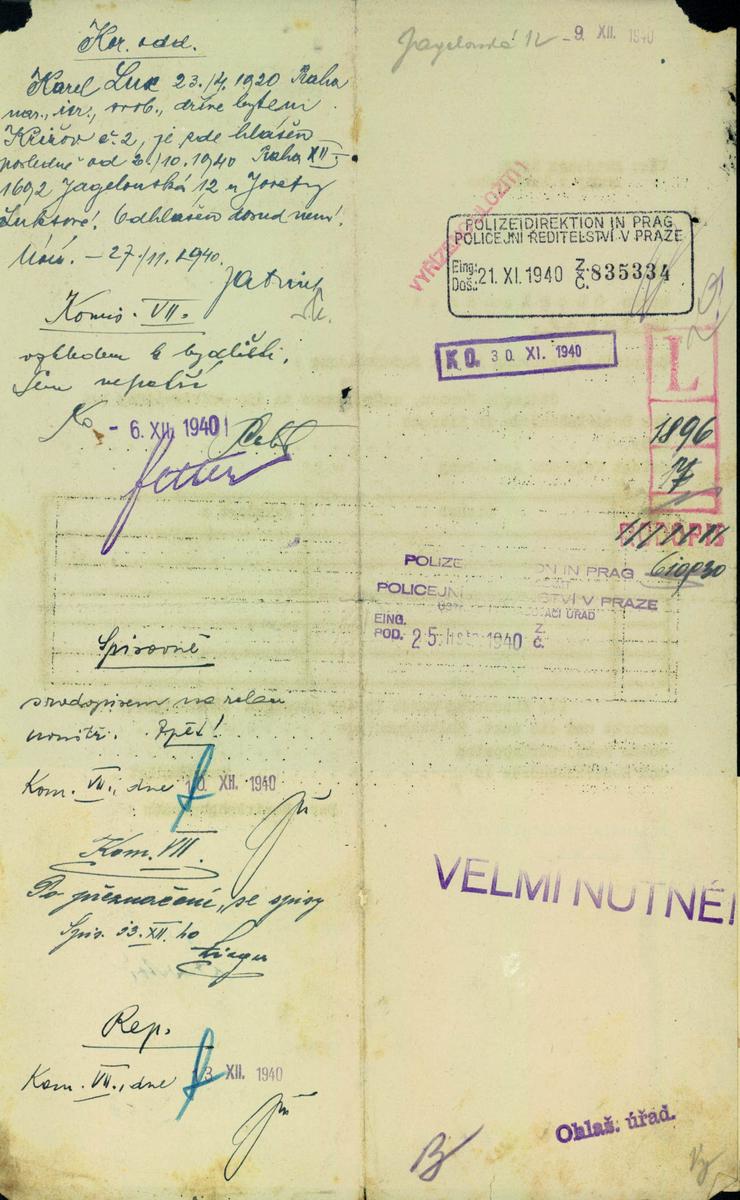 Kor. odd.
Karel Luk 23./4. 1920 Praha
nar., isr., svob., dříve bytem
Křižov č. 2, je zde hlášen
posledně od 2./10. 1940 Praha XII-
1692 Jagelonská 12 u Josefy
Luksové. Odhlášen dosud není.
27/11. 1940.
Komis. VII.
vzhledem k bydlišti,
sem nepatří
- 6. XII. 1940
Spisovně
na relaci
Zpět!
Kom. VII., dne 10. XII. 1940
Kom. VII.
Po přeznačení, se spisy
Spis. XII. 40
Rep.
Kom. VII., dne 13 XII. 1940
Jagelonská 12 - 9. XII. 1940
POLIZEIDIREKTION IN PRAG
POLICEJNÍ ŘEDITELSTVÍ V PRAZE
Eing.: Doš.: 21. XI. 1940 Z. Č. 835334
K O. 30. XI. 1940
L
1896
POLIZE ON IN PRAG
POLICEJN STVÍ V PRAZE
EING. POD. 25. 1940 Z. Č.
VELMI NUTNÉ!
Ohlaš. úřad.